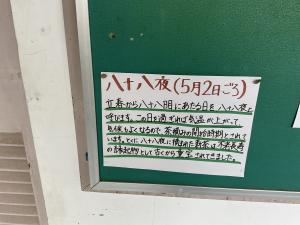 八十八夜(5月2日ごろ)
立春から八十八日にあたる日を八十八夜と
呼びます。この日を過ぎれば気温が上がって
気候もよくなるので、茶摘みの開始時期とされて
います。とくに八十八夜に摘まれた新茶は不老長寿
の縁起物として古くから重宝されてきました。